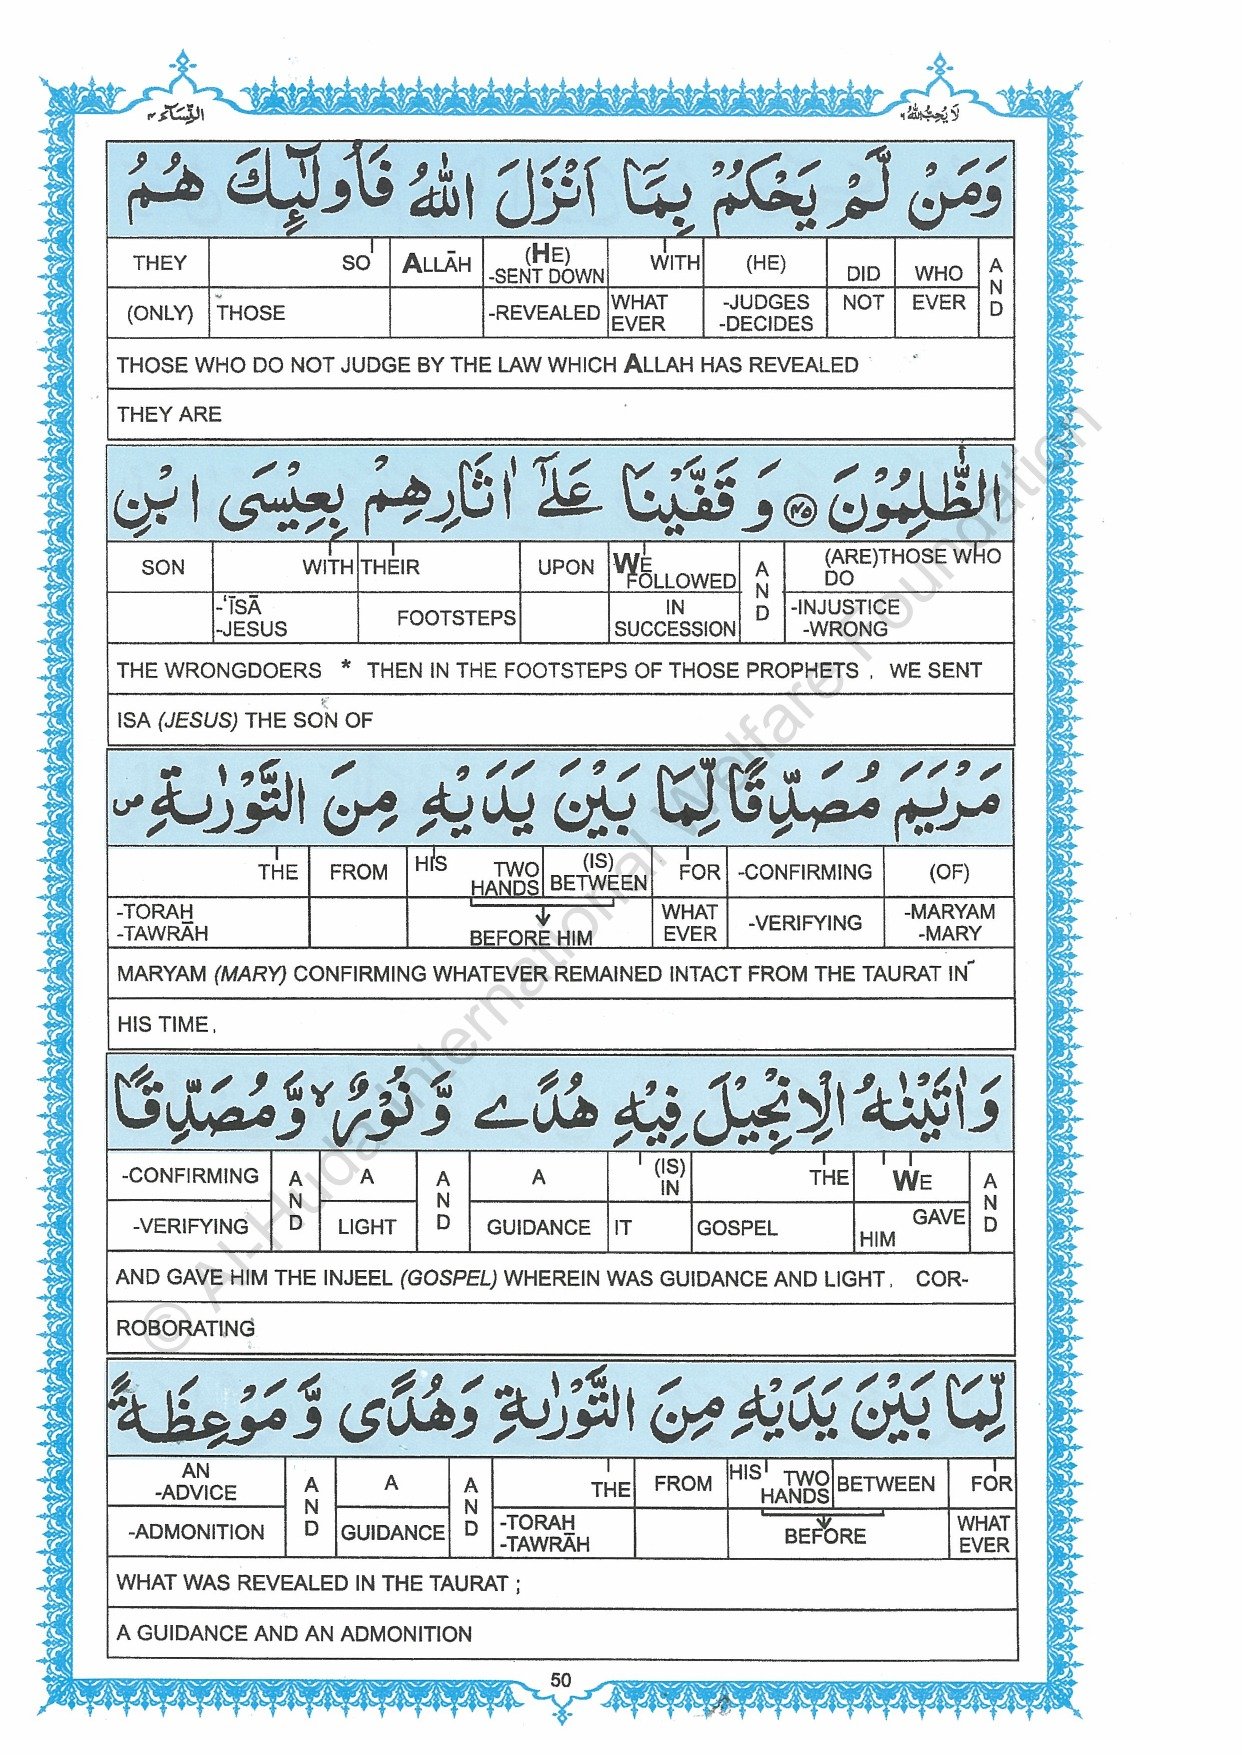 النِّسَآء ۴
لَا يُحِبُّ اللهُ ۶
وَمَنْ لَّمْ يَحْكُمْ بِمَآ اَنْزَلَ اللهُ فَاُولٰٓئِكَ هُمُ
THEY SO ALLĀH (HE) -SENT DOWN WITH (HE) DID WHO AND
(ONLY) THOSE -REVEALED WHAT EVER -JUDGES -DECIDES NOT EVER
THOSE WHO DO NOT JUDGE BY THE LAW WHICH ALLAH HAS REVEALED
THEY ARE
الظّٰلِمُوْنَ ۴۵ وَ قَفَّيْنَا عَلٰٓى اٰثَارِهِمْ بِعِيْسَى ابْنِ
SON WITH THEIR UPON WE FOLLOWED AND (ARE)THOSE WHO DO
-'ĪSĀ -JESUS FOOTSTEPS IN SUCCESSION -INJUSTICE -WRONG
THE WRONGDOERS * THEN IN THE FOOTSTEPS OF THOSE PROPHETS , WE SENT
ISA (JESUS) THE SON OF
مَرْيَمَ مُصَدِّقًا لِّمَا بَيْنَ يَدَيْهِ مِنَ التَّوْرٰىةِ ص
THE FROM HIS TWO HANDS (IS) BETWEEN FOR -CONFIRMING (OF)
-TORAH -TAWRĀH BEFORE HIM WHAT EVER -VERIFYING -MARYAM -MARY
MARYAM (MARY) CONFIRMING WHATEVER REMAINED INTACT FROM THE TAURAT IN
HIS TIME,
وَاٰتَيْنٰهُ الْاِنْجِيْلَ فِيْهِ هُدًى وَّ نُوْرٌ ۙ وَّ مُصَدِّقًا
-CONFIRMING AND A AND A (IS) IN THE WE AND
-VERIFYING LIGHT GUIDANCE IT GOSPEL GAVE HIM
AND GAVE HIM THE INJEEL (GOSPEL) WHEREIN WAS GUIDANCE AND LIGHT, COR-
ROBORATING
لِّمَا بَيْنَ يَدَيْهِ مِنَ التَّوْرٰىةِ وَهُدًى وَّ مَوْعِظَةً
AN -ADVICE AND A AND THE FROM HIS TWO HANDS BETWEEN FOR
-ADMONITION GUIDANCE -TORAH -TAWRĀH BEFORE WHAT EVER
WHAT WAS REVEALED IN THE TAURAT ;
A GUIDANCE AND AN ADMONITION
50
© Al-Huda International Welfare Foundation